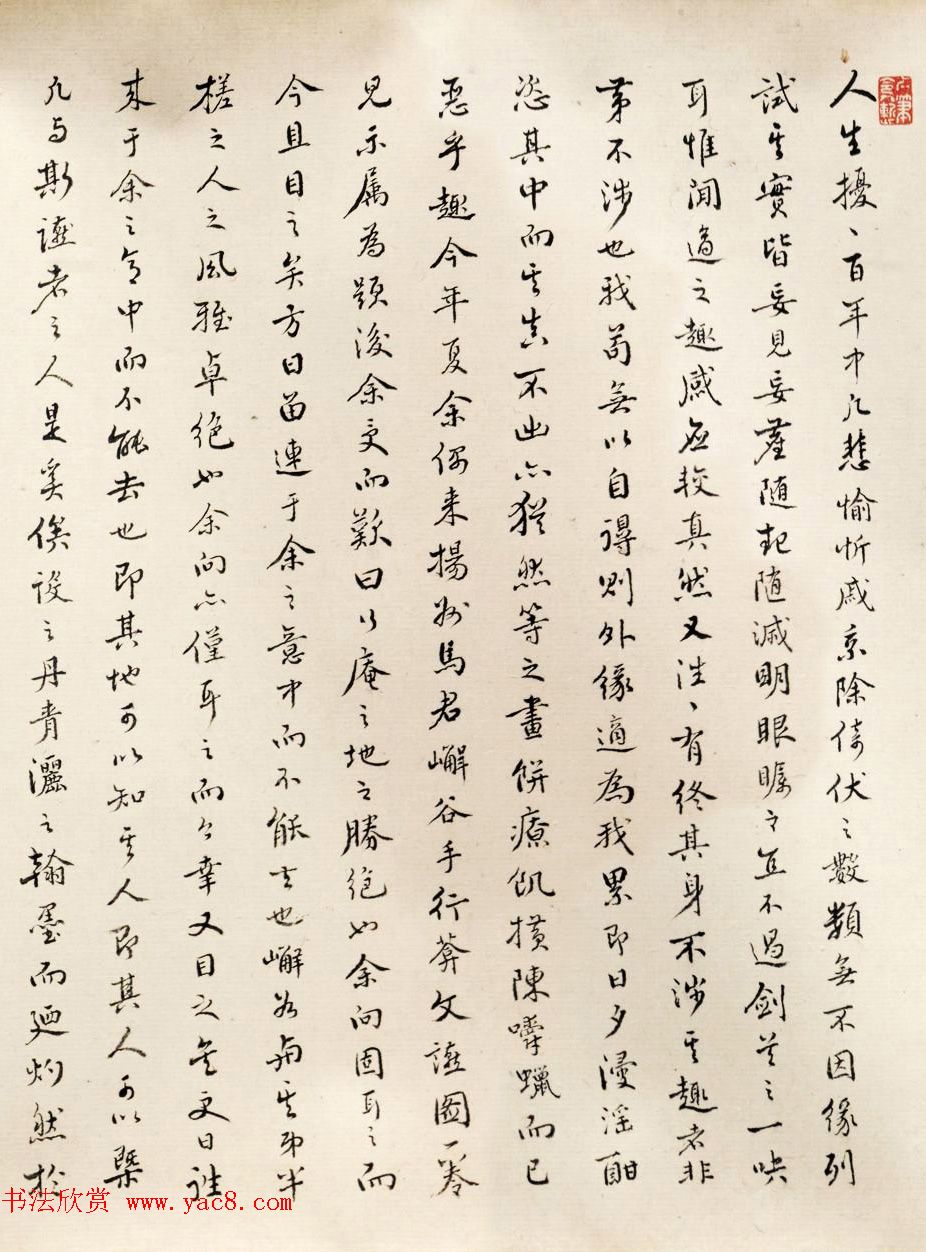 人生擾〻百年中凡悲愉忻戚乘除倚伏之數類無不因緣列
試其實皆妄見妄塵隨起隨滅明眼矚之直不過劍首之一吷
耳惟閒適之趣感應較真然又往〻有終其身不涉其趣者非
第不涉也我苟無以自得則外緣適為我累即日夕漫淫酣
恣其中而其真不出亦猶然等之畫餅療飢橫陳嚼蠟而已
惡乎趣今年夏余偶來揚州馬君嶰谷手行葊文讌圖一卷
見示屬為題後余受而歎曰行庵之地之勝絕如余向固耳之而
今且目之矣方日留連于余之意中而不能去也嶰谷與其弟半
槎之人之風雅卓絕如余向亦僅耳之而今幸又目之矣更日往
來于余之意中而不能去也即其地可以知其人即其人可以槩
凡與斯讌者之人是奚俟設之丹青灑之翰墨而迺灼然於
书法欣赏 www.yac8.com